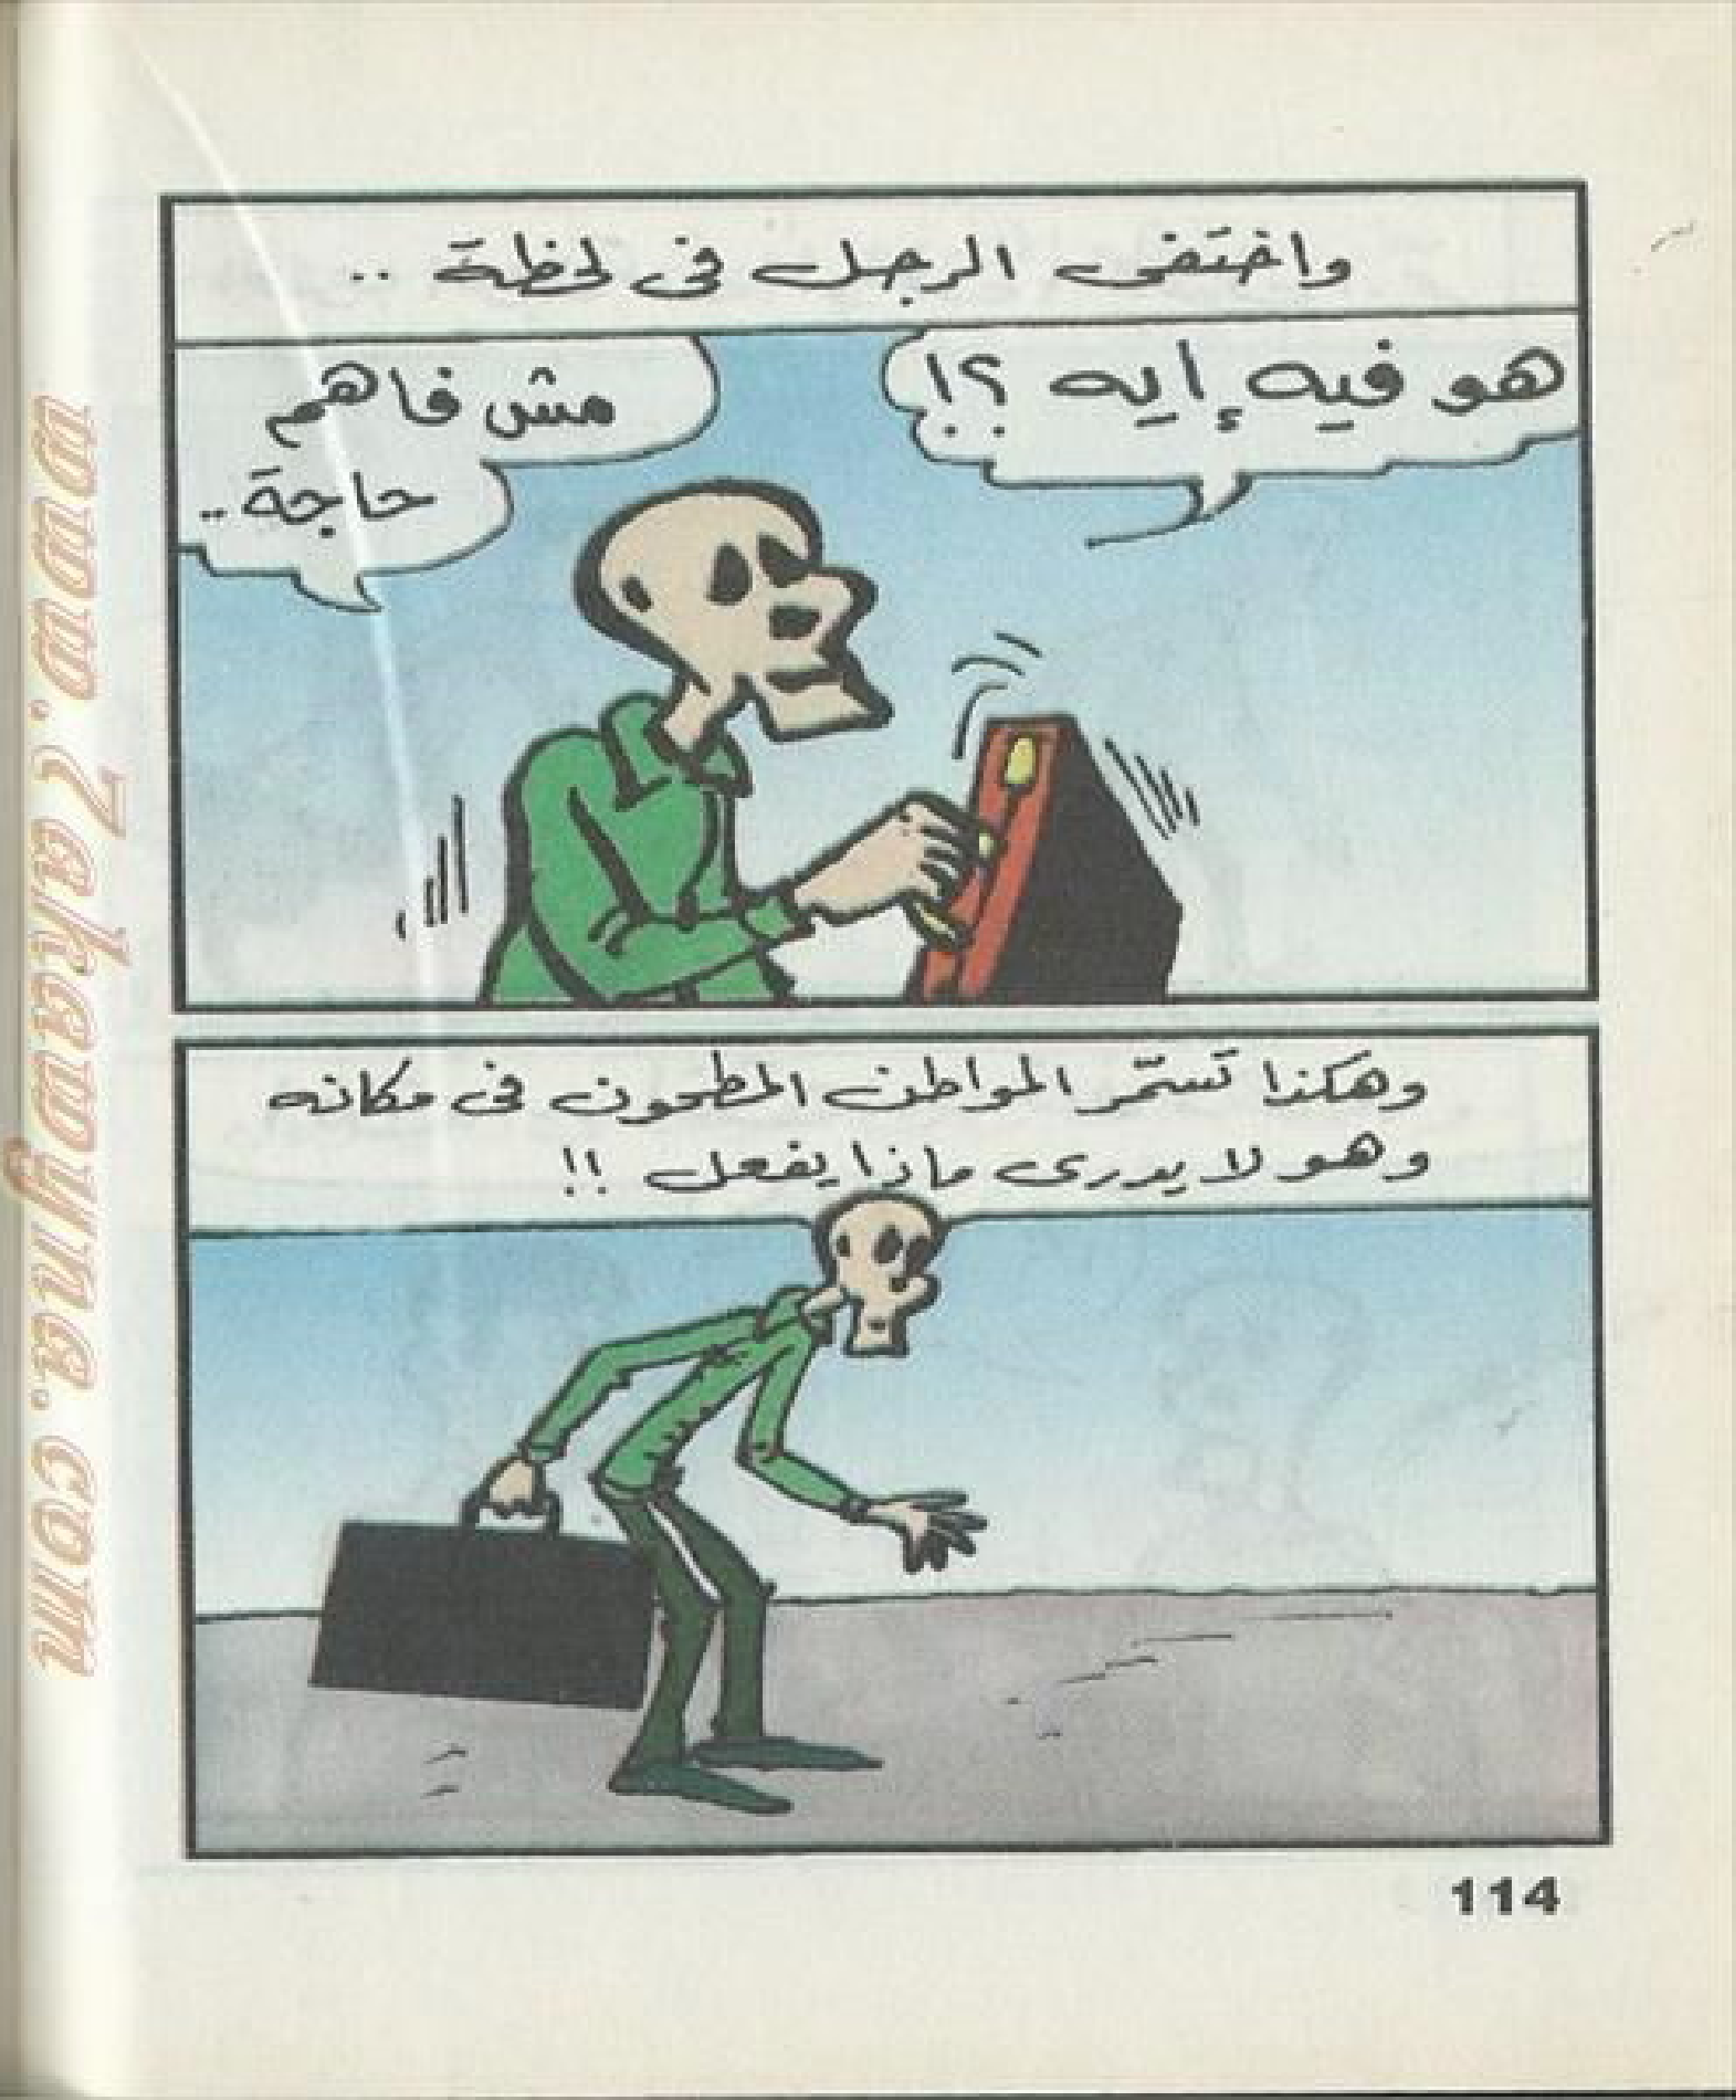 واختفى الرجل فى لحظة ..
هو فيه إيه ؟!
مش فاهم
حاجة ..
وهكذا تسمّر المواطن المطحون فى مكانه
وهو لا يدرى ماذا يفعل !!
114
www.7akawyna.com